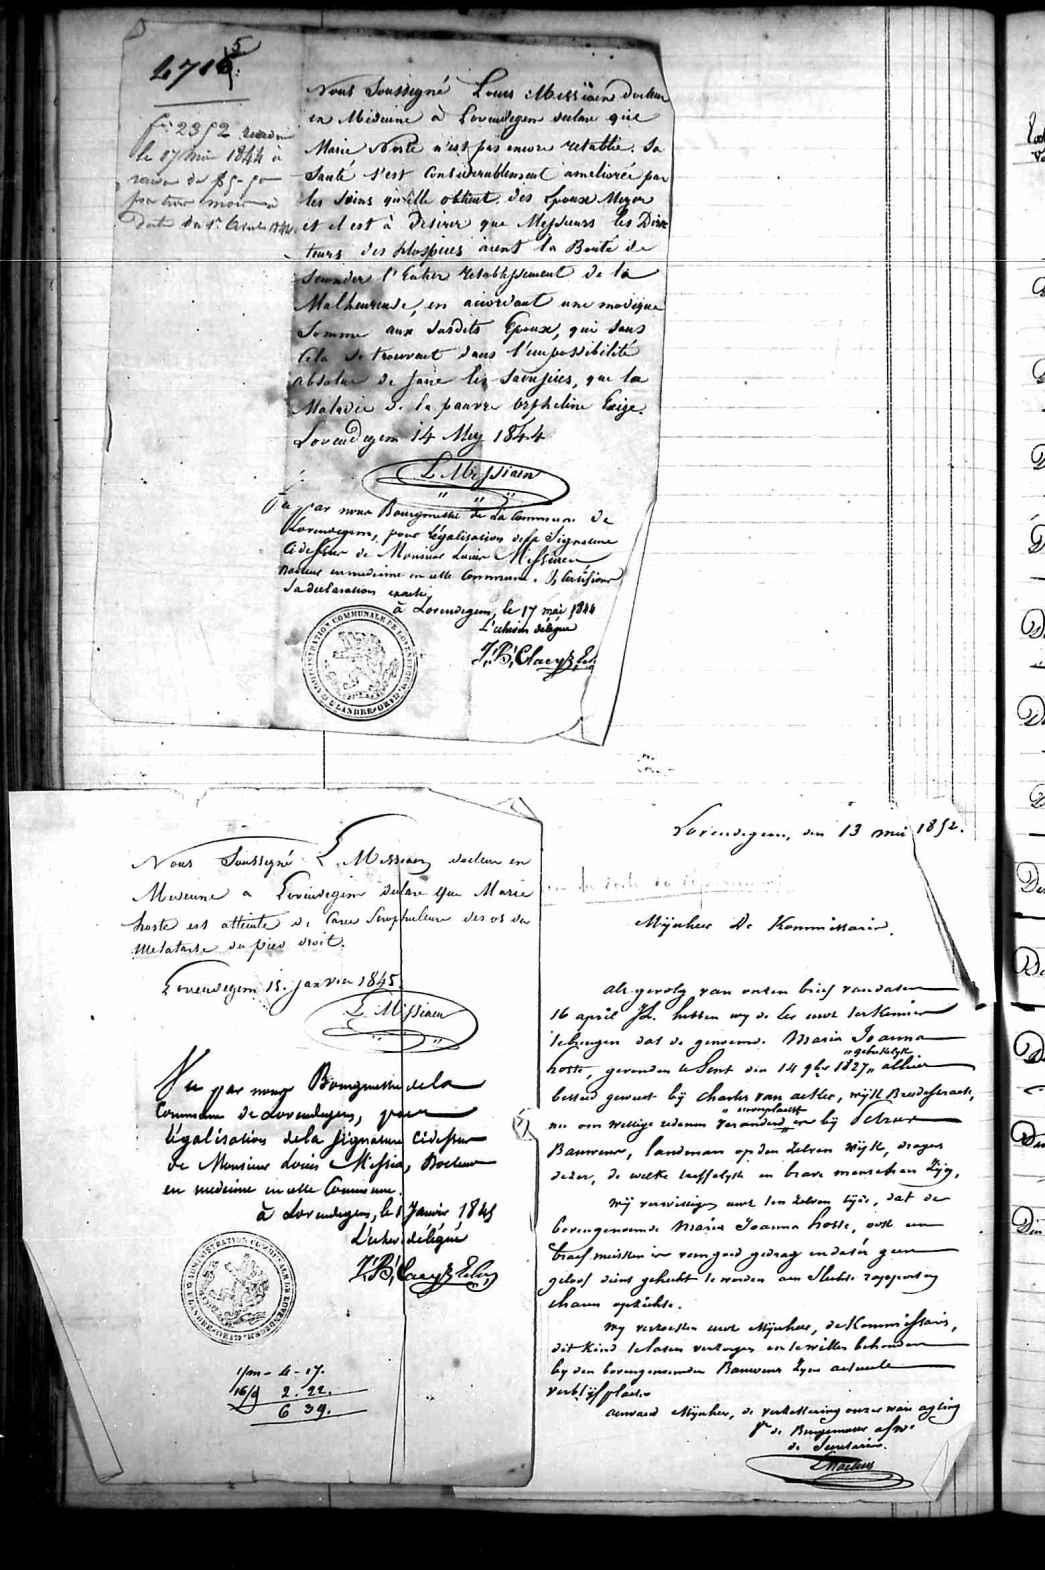 4715
Nous Soussigné Louis Messiaen docteur
en Médecine à Lovendegem declare que
Marie Hoste n'est pas encore retablie. Sa
Santé s'est Considerablement améliorée par
les Soins qu'elle obtient des Epoux Meyer
et il est à desirer que Messieurs les Direc
teurs des Hospices aient la Bonté de
Seconder l'Entier retablissement de la
Malheureuse, en accordant une modique
Somme aux Susdits Epoux, qui Sans
Cela Se trouvent dans l'impossibilité
absolue de faire les Sacrifices, que la
Maladie de la pauvre orpheline Exige.
Lovendegem 14 Mey 1844
L Messiaen
le 17 mai 1844 à
Vu par nous Bourgmestre de La Commune de
Lovendegem, pour légalisation de la Signature
Cidessus de Monsieur Louis Messiaen
Docteur en medecine en cette Commune.
Sa declaration exacte,
à Lovendegem, le 17 mai 1844
L'échevin délégué
J. B. Claeys
ADMINISTRATION COMMUNALE DE LOVENDEGEM
Nous Soussigné L. Messiaen docteur en
Medecine a Lovendegem declare que Marie
hoste est atteinte de Carie Scrophuleuse des os du
Metatarse du pied droit.
Lovendegem 15. Janvier 1845.
L. Messiaen
Vu par nous Bourgmestre de la
Commune de Lovendegem, pour
légalisation de la Signature Cidessus
de Monsieur Louis Messiaen, Docteur
en medecine en cette Commune.
à Lovendegem, le Janvier 1845
L'échevin délégué
J. B. Claeys
ADMINISTRATION COMMUNALE DE LOVENDEGEM
4-17.
2. 22.
6 39.
Lovendegem, den 13 mei 1852.
Mijnheer De Kommissaris.
Als gevolg van onzen brief van daten
16 april Jl. hebben wy de Eer uwe ter kennis
te brengen dat de genoemde Maria Joanna
hoste, gevonden te Gent den 14 9ber 1827 allhier
besteed geweest bij Charles van aelter, wijk Bredestraete,
nu om wettige redenen veranderd bij Petrus
Bauwens, landman op den Zelven Wijk,
dezer, de welke treffelyk en brave menschen Zijn,
Wij verwittigen uwe ten Zelven tijde, dat de
bovengenoemde Maria Joanna hoste, ook een
braef meisken is van goed gedrag en datér geen
geloof diend gehecht te worden aen Slechte rapporten
Wy verzoeken uwe Mijnheer, de Kommissaris,
dit kind te laten verzorgen en te willen behouden
by den bovengenoemden Bauwens Zyne actuele
verblijfplaets
aenvaerd Mijnheer, de verzekering onzer ware agting
de Secretaris.